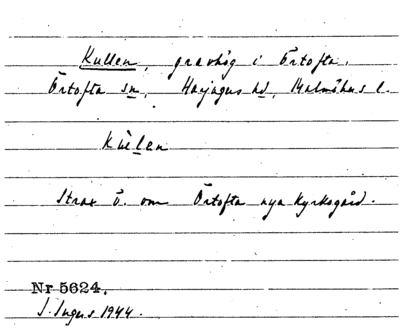 Kullen, gravhög i Örtofta,
Örtofta sn, Harjagers hd, Malmöhus l.
Kùlen
Strax ö. om Örtofta nya kyrkogård.
Nr 5624.
J. Ingers 1944.